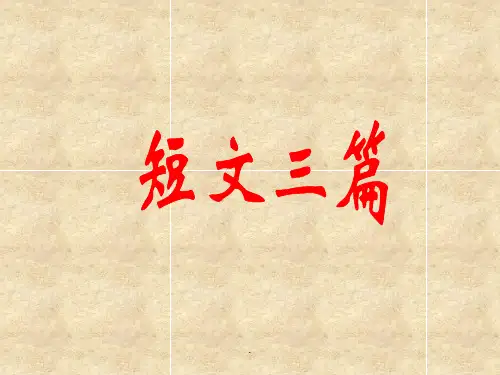 短文三篇